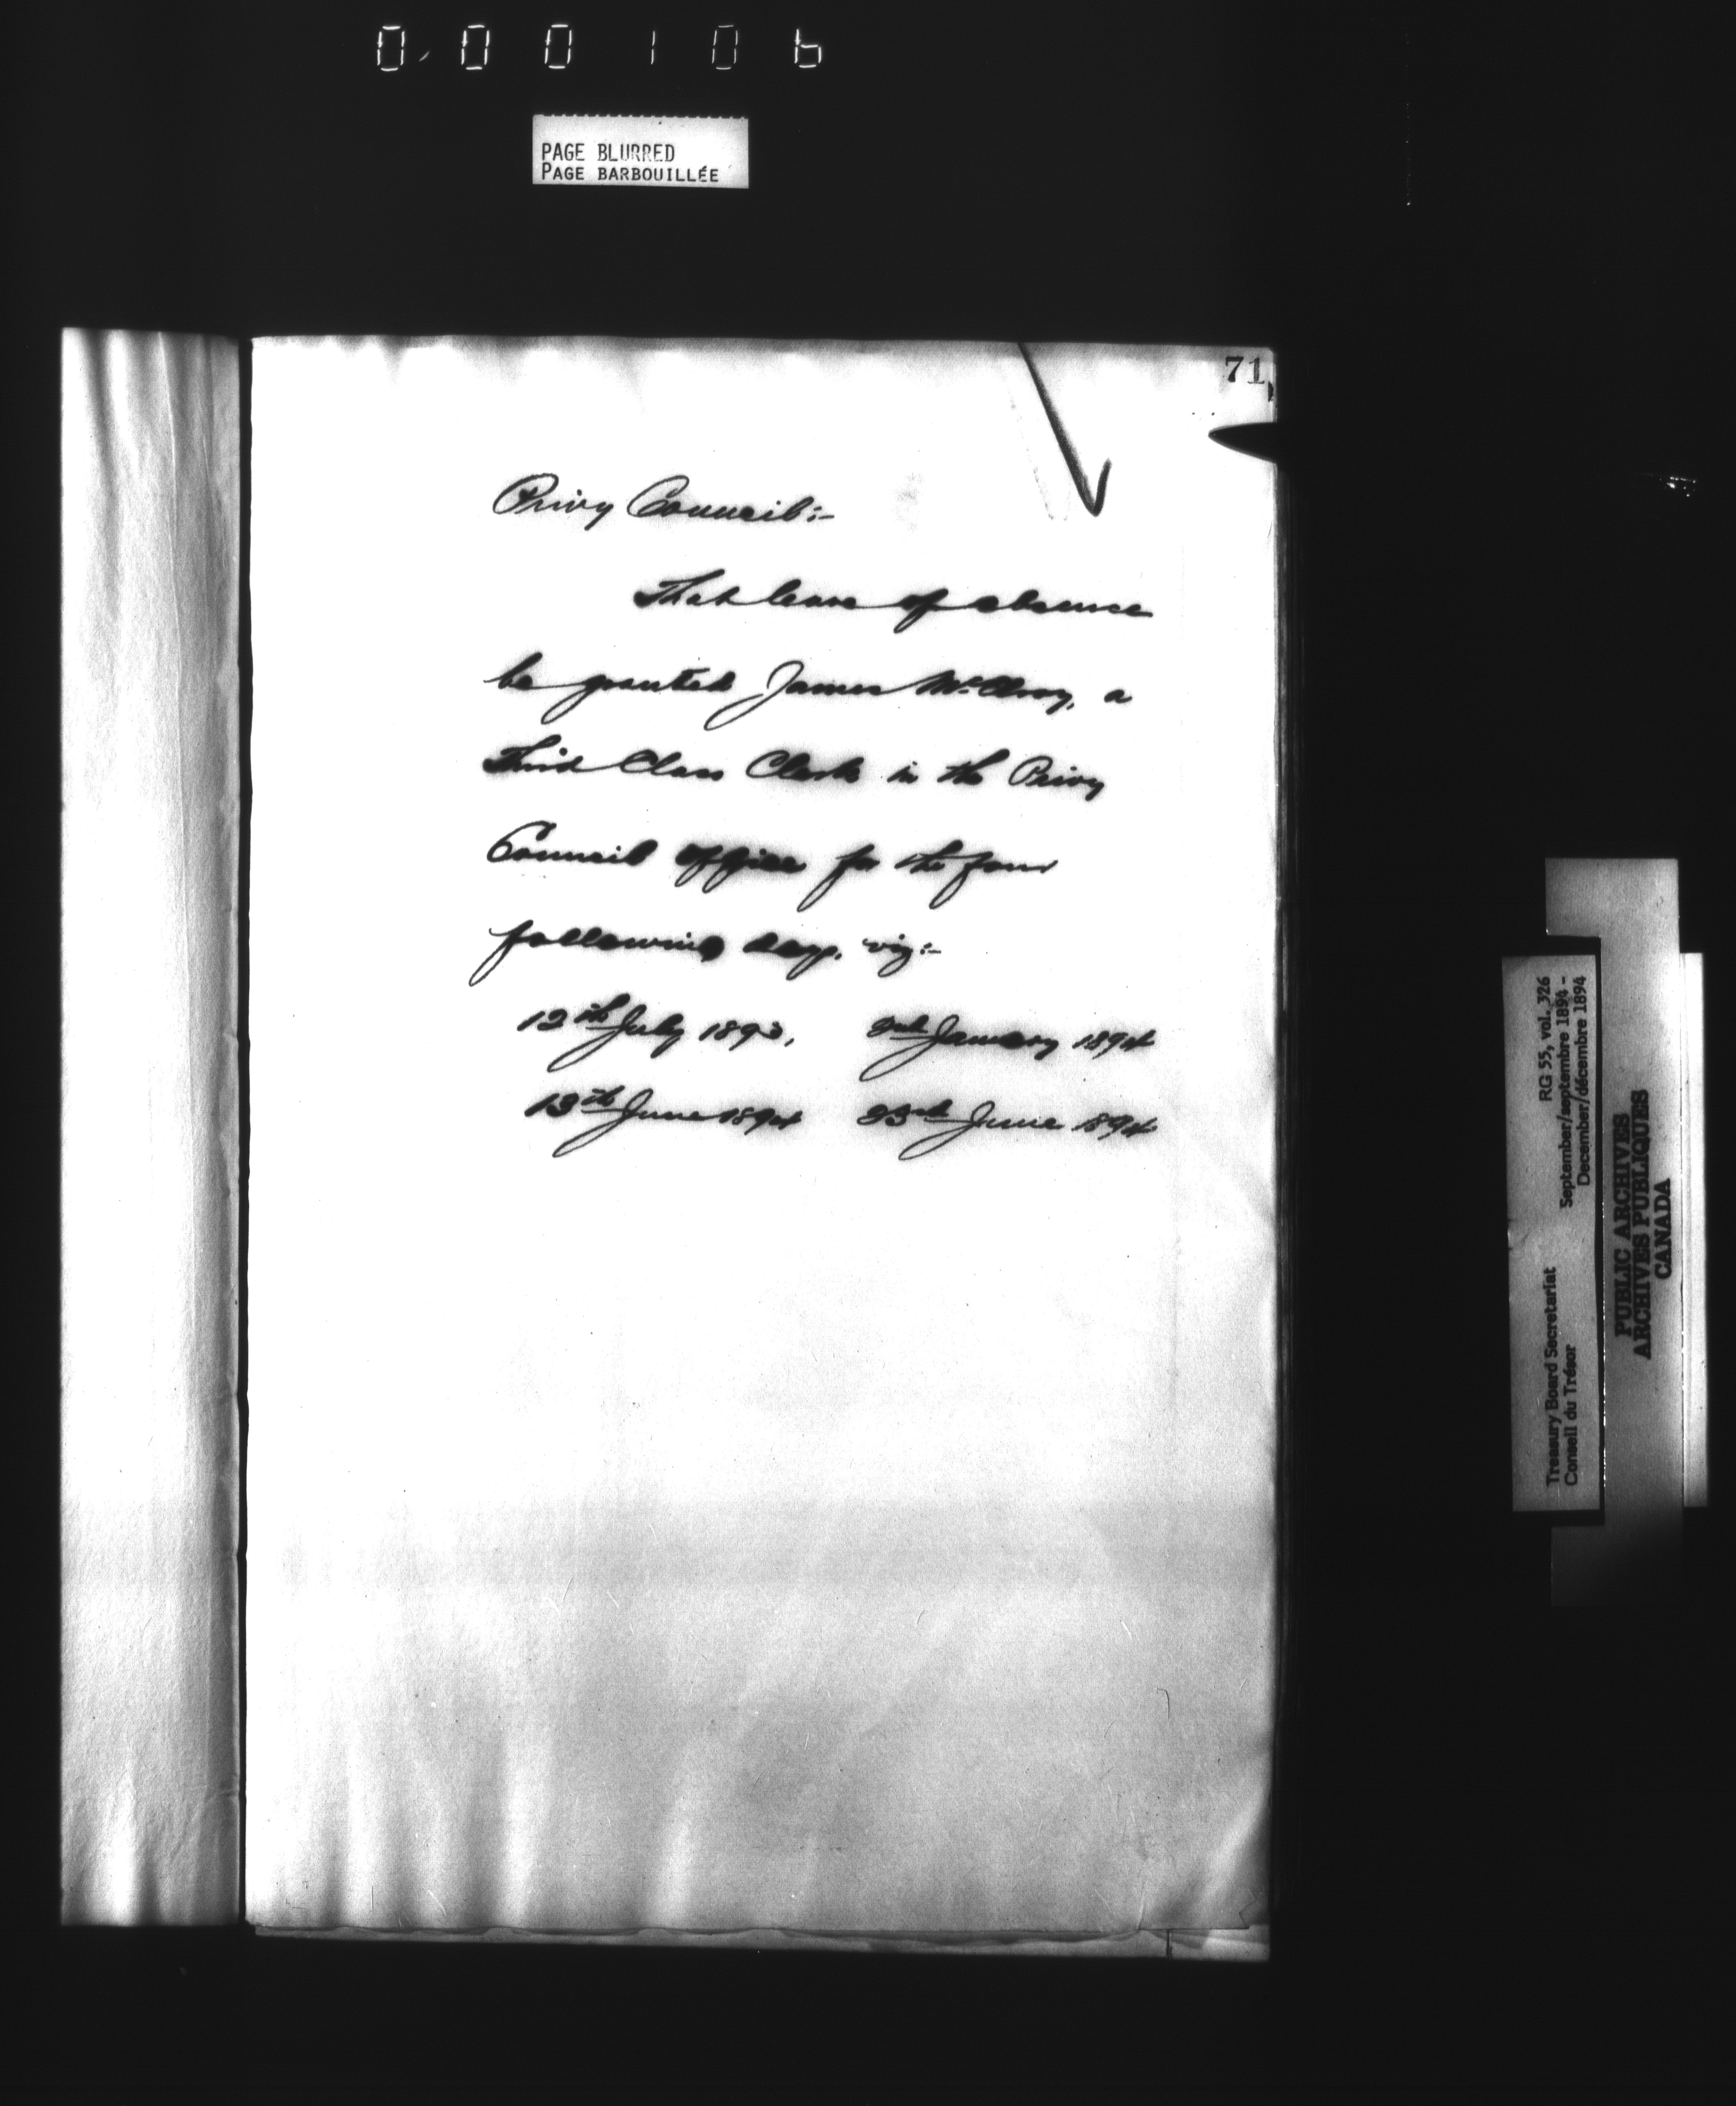 000106
PAGE BLURRED
PAGE BARBOUILLÉE
71
Privy Council:-
That leave of absence
be granted James McElroy, a
Third Class Clerk in the Privy
Council Office for the four
following days. viz:-
12th July 1893, 2nd January 1894
13th June 1894 23rd June 1894
Treasury Board Secretariat RG 55, vol. 326
Conseil du Trésor September/septembre 1894 -
December/décembre 1894
PUBLIC ARCHIVES
ARCHIVES PUBLIQUES
CANADA